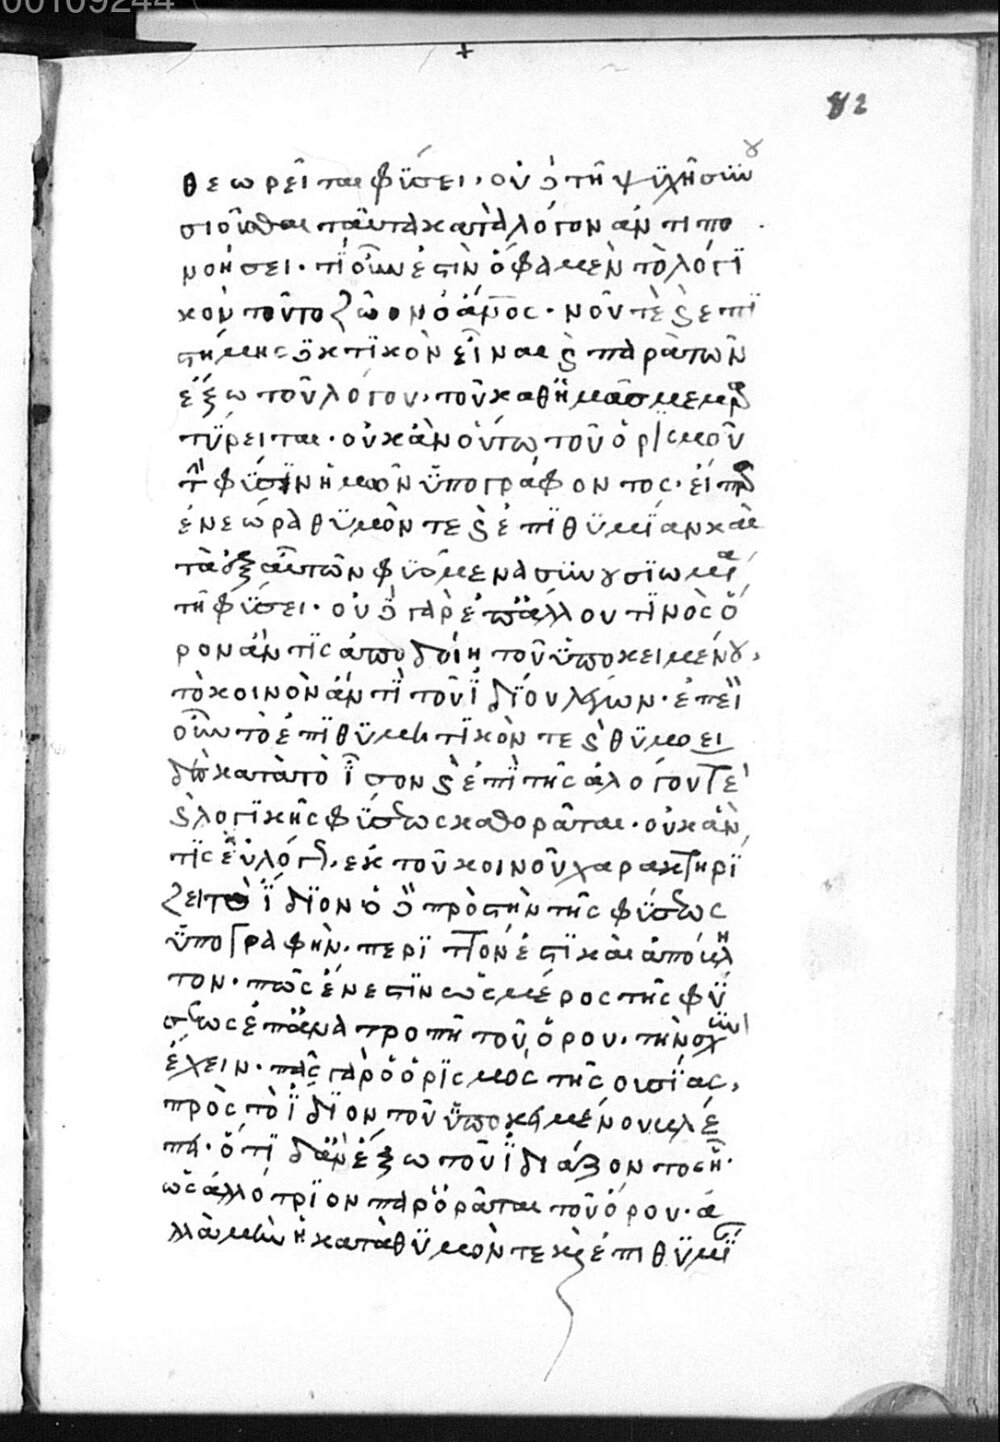 00109244
82
θεωρεῖται φύσει· οὐδὲ τῆ ψυχῆ συνου
σιοῦσθαι ταῦτα κατὰ λόγον ἄν τι πο
νοήσει· τί οὖν ἐστὶν ὅ φαμὲν τὸ λογι
κὸν τοῦτο ζῶον ὁ ἄνος· νοῦ τὲ ϗ ἐπι
στήμης δεκτικὸν εἶναι ϗ παρὰ τῶν
ἔξω τοῦ λόγου, τοῦ καθ ἡμᾶς μεμαρ
τύρειται· οὐκ ἂν οὕτω τοῦ ὁρισμοῦ
τὴν φύσιν ἡμῶν ὑπογράφοντος· εἴπερ
ἐνεώρα θυμόν τε ϗ ἐπιθυμίαν καὶ
τὰ ἐξ αὐτῶν φυόμενα συνουσιωμένα
τῆ φύσει· οὐδὲ γὰρ ἐπ ἄλλου τινὸς ὅ
ρον ἄν τις ἀποδοίη τοῦ ὑποκειμένου,
τὸ κοινὸν ἀντὶ τοῦ ἰδίου λέγων· ἐπεὶ
οὖν τὸ ἐπιθυμητικόν τε ϗ θυμοει
δὲς κατὰ τὸ ἴσον ϗ ἐπὶ τῆς ἀλόγου τε
ϗ λογικῆς φύσεως καθορᾶται· οὐκ ἄν
τις εὐλόγως, ἐκ τοῦ κοινοῦ χαρακτηρί
ζει τὸ ἴδιον ὃ δὲ πρὸς τὴν τῆς φύσεως
ὑπογραφὴν, περιττόν ἐστι καὶ ἀπόβλη
τον· πῶς ἔνεστιν ὡς μέρος τῆς φύ
σεως ἐπ ἀνατροπῆ τοῦ ὅρου, τὴν ἰσχὺν
ἔχειν· πᾶς γὰρ ὁ ὁρισμὸς τῆς οὐσίας,
πρὸς τὸ ἴδιον τοῦ ὑποκειμένου βλέ
πει· ὅτι δ ἂν ἔξω τοῦ ἰδιάζοντος ἦ·
ὡς ἀλλότριον παρορᾶται τοῦ ὅρου· ἀ
λλὰ μὴν ἡ κατὰ θυμὸν τε καὶ ἐπιθυμί